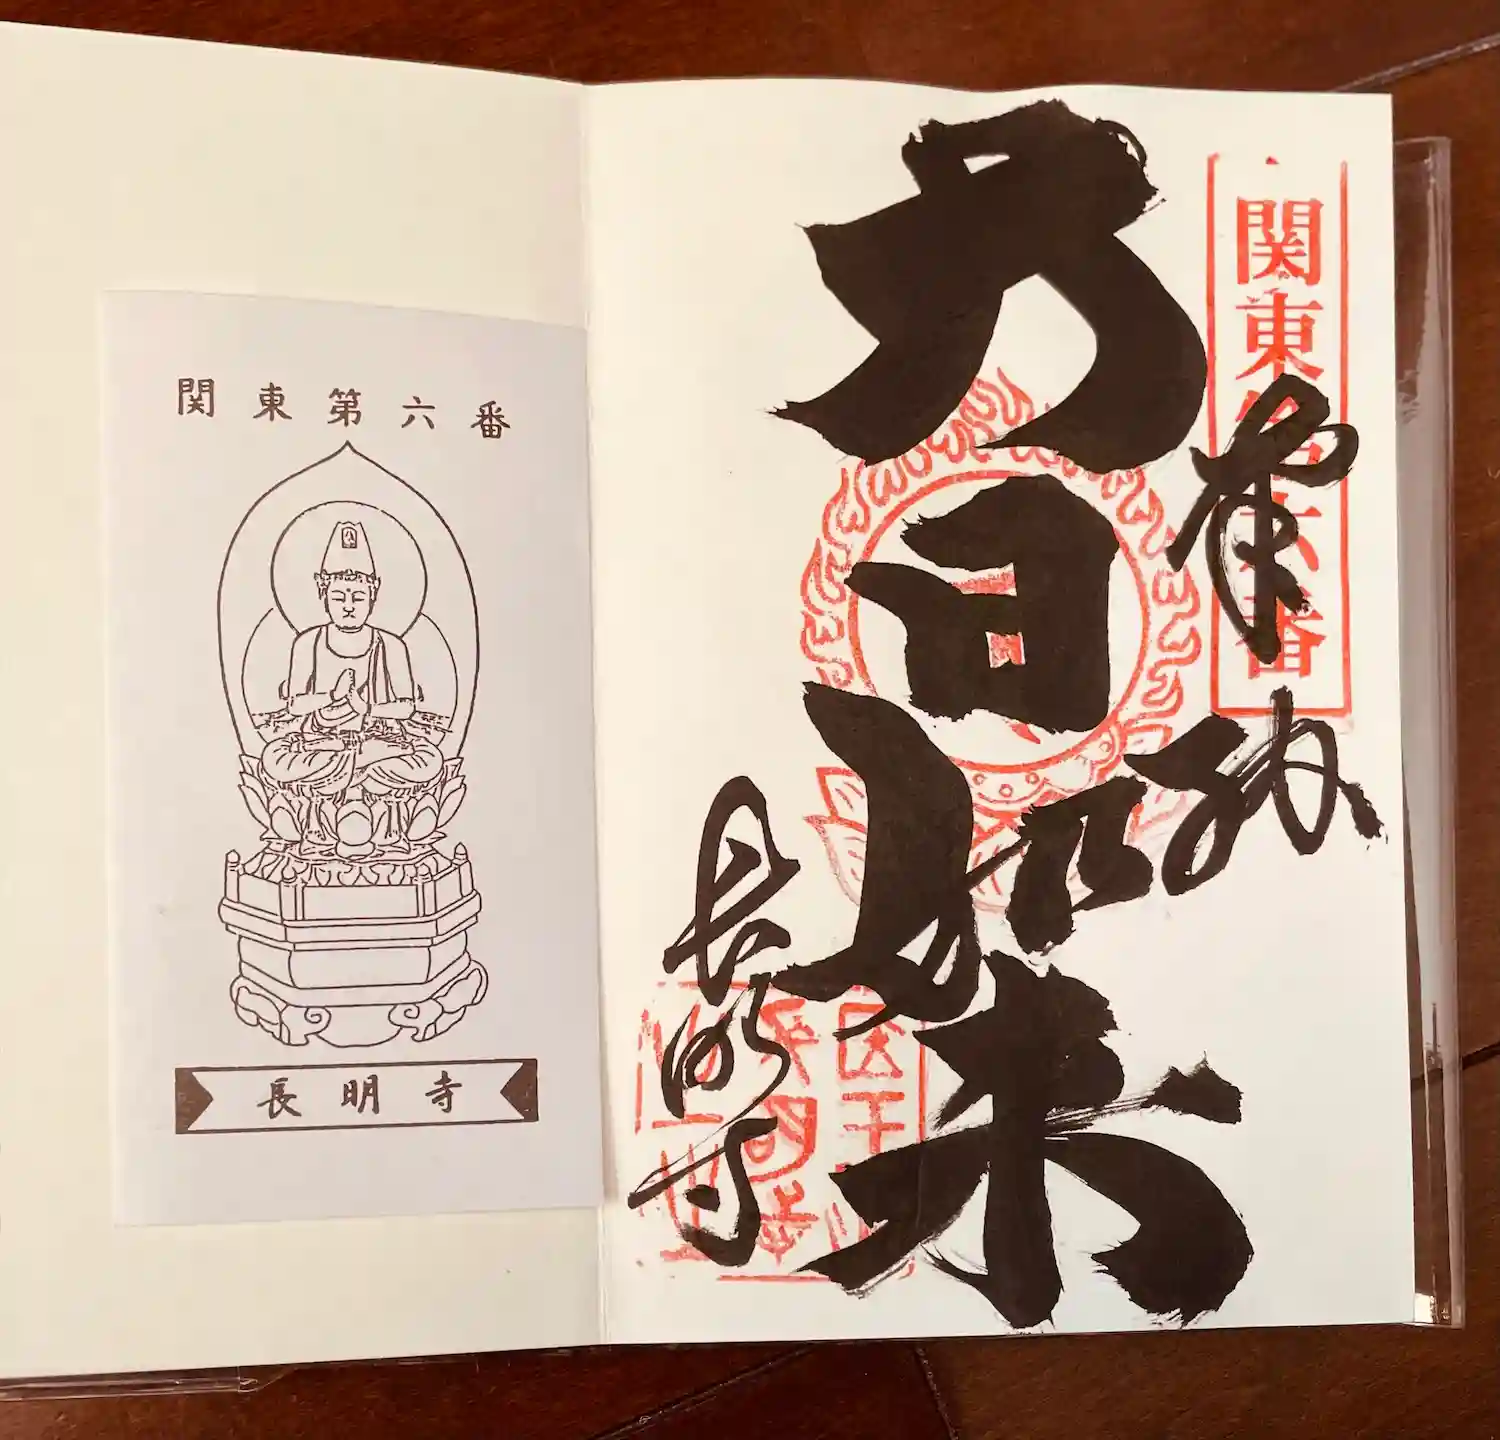 関東第六番
長明寺
関東第六番
奉納
大日如来
長明寺